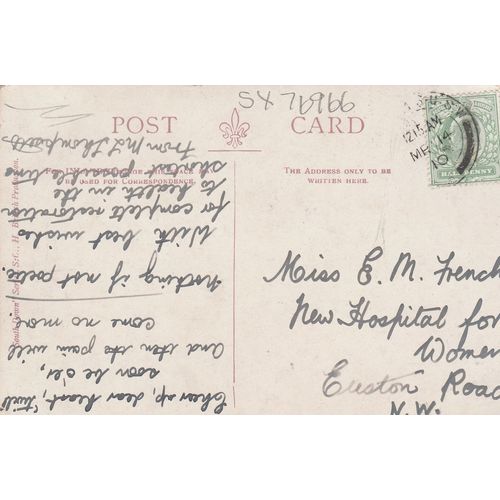 SX 71966
POST CARD
BE USED FOR CORRESPONDENCE.
THE ADDRESS ONLY TO BE
WRITTEN HERE.
12.15 AM
14
10
HALFPENNY
Miss E. M. French
New Hospital for
Women
Euston Road
N.W.
Cheer up, dear heart, 'twill
soon be o'er,
And then the pain will
come no more.
Nothing if not poetic.
With best wishes
for complete restoration
to health in the
shortest possible time
From M L